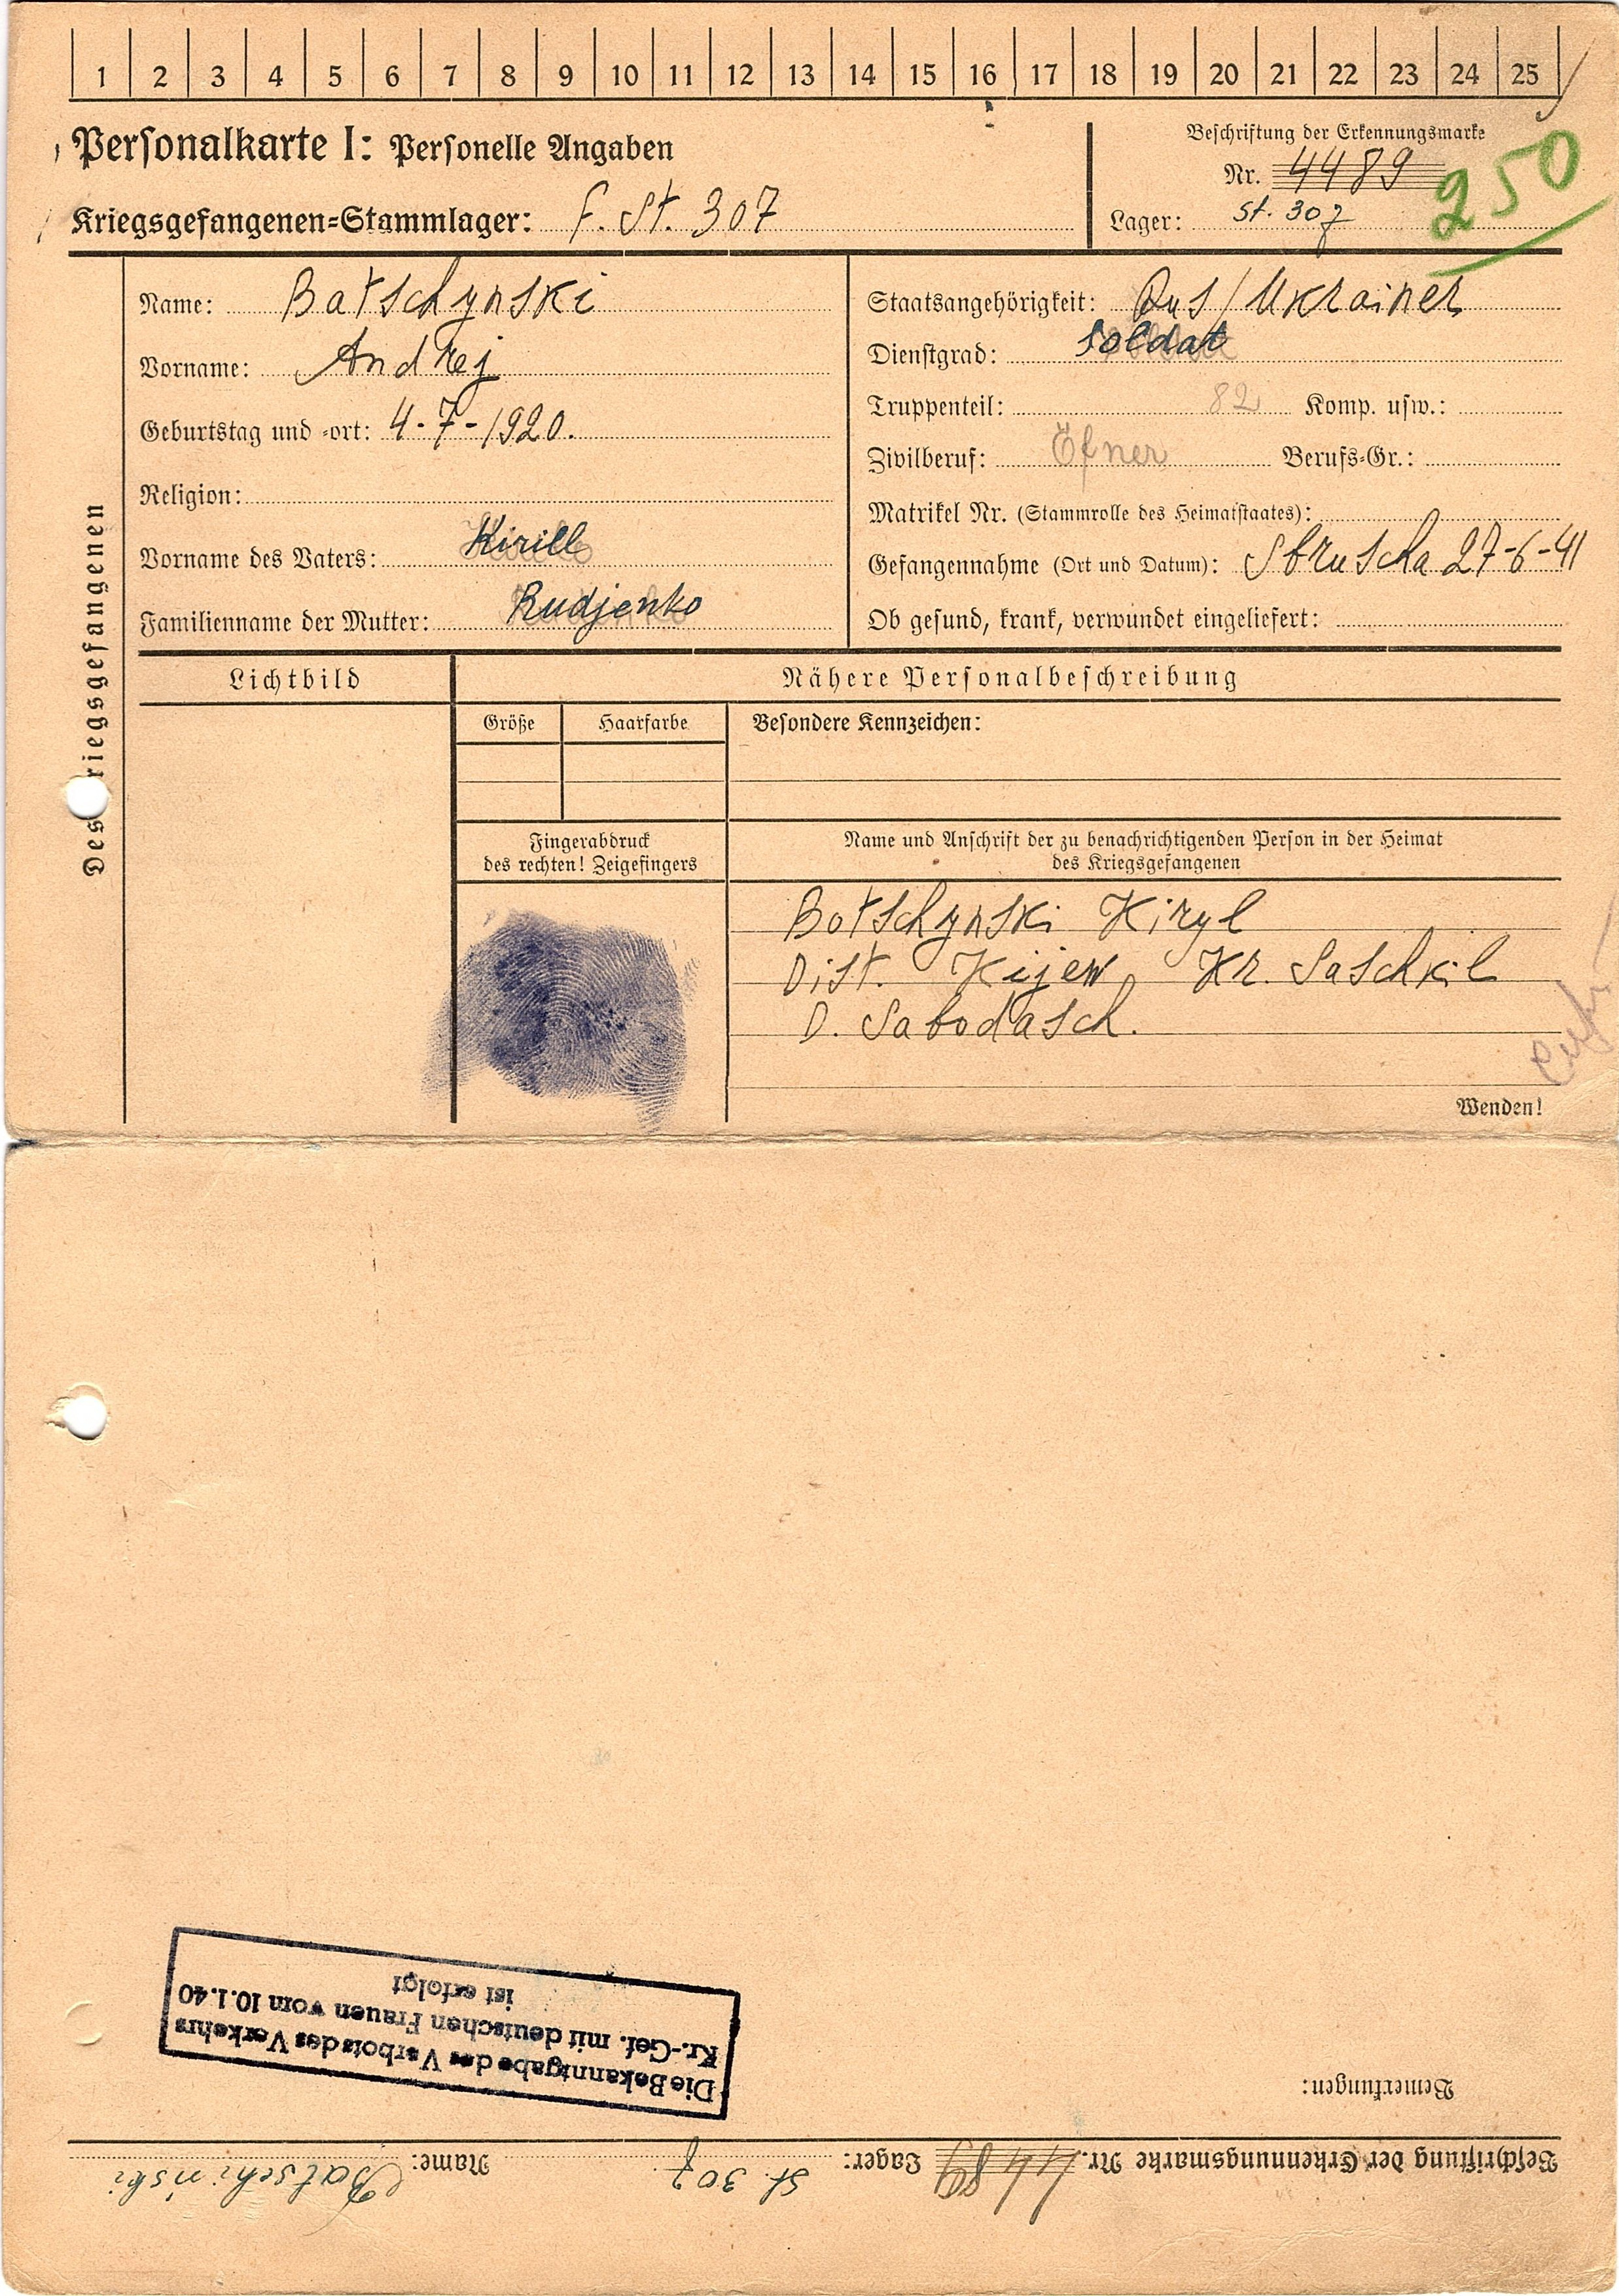 1 2 3 4 5 6 7 8 9 10 11 12 13 14 15 16 17 18 19 20 21 22 23 24 25
Personalkarte I: Personelle Angaben
Kriegsgefangenen=Stammlager: F. St. 307
Beschriftung der Erkennungsmarke
Nr. 4489
250
Lager: St. 307
Des Kriegsgefangenen
Name: Batschynski
Vorname: Andrej
Geburtstag und -ort: 4-7-1920.
Religion:
Vorname des Vaters: Kirill
Familienname der Mutter: Rudjenko
Staatsangehörigkeit: Rus/Ukrainer
Dienstgrad: Soldat
Truppenteil: 82 Komp. usw.:
Zivilberuf: Öfner Berufs=Gr.:
Matrikel Nr. (Stammrolle des Heimatstaates):
Gefangennahme (Ort und Datum): Sbruscha 27-6-41
Ob gesund, krank, verwundet eingeliefert:
Lichtbild
Nähere Personalbeschreibung
Größe Haarfarbe Besondere Kennzeichen:
Fingerabdruck
des rechten! Zeigefingers
Name und Anschrift der zu benachrichtigenden Person in der Heimat
des Kriegsgefangenen
Botschynski Kiryl
Dist. Kijew Kr. Saschkil
D. Sabodasch.
Wenden!
Beschriftung der Erkennungsmarke Nr. 4489 Lager: St. 307 Name: Batschinski
Bemerkungen:
Die Bekanntgabe des Verbots des Verkehrs
Kr.-Gef. mit deutschen Frauen vom 10.1.40
ist erfolgt